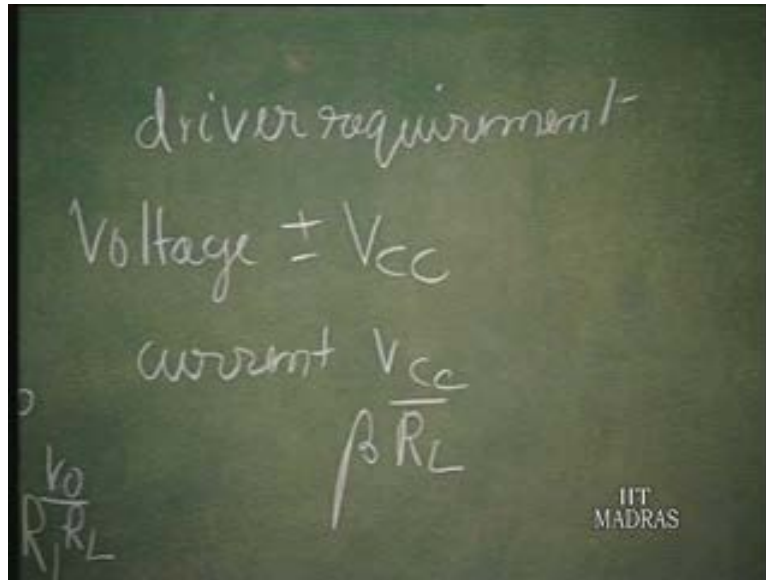 driver requirement
Voltage ± VCC
current VCC
β RL
V0
R1 RL
IIT
MADRAS